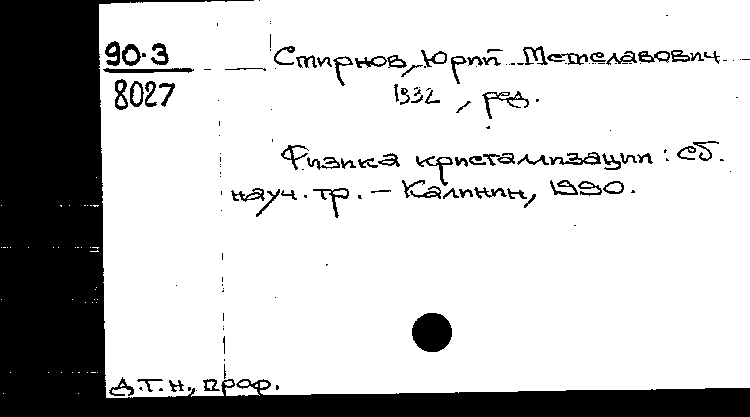 90-3
8027
Смирнов, Юрий Мстиславович
1932 , ред.
Физика кристаллизации : Сб.
науч. тр. – Калинин, 1990.
д.т.н., проф.